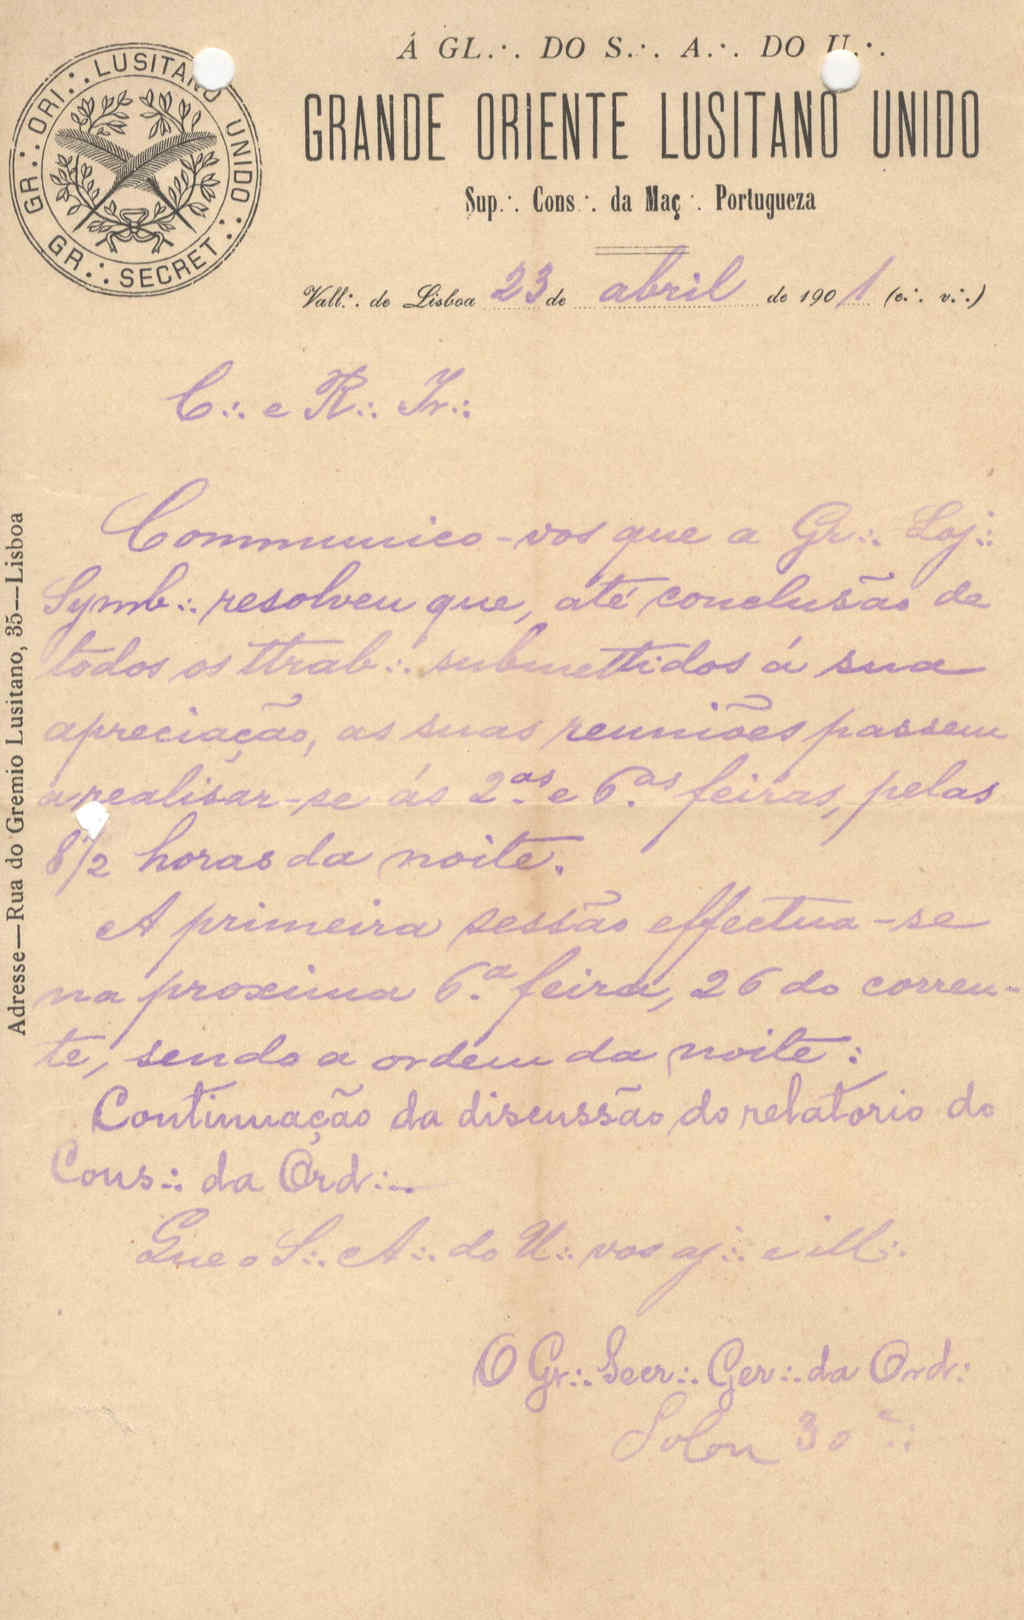 Á GL.·. DO S.·. A.·. DO U.·.
GRANDE ORIENTE LUSITANO UNIDO
Sup.·. Cons.·. da Maç.·. Portugueza
GR.·. ORI.·. LUSITANO UNIDO
GR.·. SECRET.·.
Vall.·. de Lisboa 23 de abril de 1901 (e.·. v.·.)
C.·. e R.·. Ir.·.
Communico-vos que a Gr.·. Loj.·.
Symb.·. resolveu que, até conclusão de
todos os ttrab.·. submettidos á sua
apreciação, as suas reuniões passem
a realisar-se ás 2.as e 6.as feiras, pelas
8 1/2 horas da noite.
A primeira sessão effectua-se
na proxima 6.a feira, 26 do corren-
te, sendo a ordem da noite:
Continuação da discussão do relatorio do
Cons.·. da Ord.·.
Que o S.·. A.·. do U.·. vos aj.·. e ill.·.
O Gr.·. Secr.·. Ger.·. da Ord.·.
Solon 30
Adresse—Rua do Gremio Lusitano, 35—Lisboa